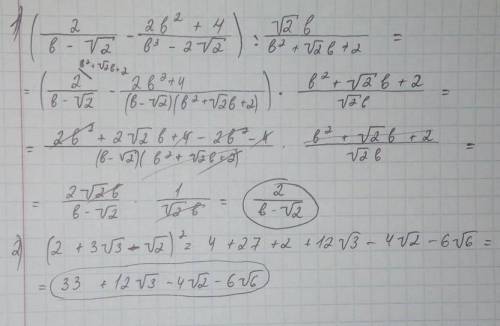 1) (2/(в - √2) - (2в² + 4)/(в³ - 2√2)) : (√2 в)/(в² + √2в + 2) =
= (2/(в - √2) (в² + √2в + 2) - (2в² + 4)/((в - √2)(в² + √2в + 2))) · (в² + √2в + 2)/(√2в) =
= (2в² + 2√2в + 4 - 2в² - 4)/((в - √2)(в² + √2в + 2)) · (в² + √2в + 2)/(√2в) =
= (2√2в)/(в - √2) · 1/(√2в) = 2/(в - √2)
2) (2 + 3√3 - √2)² = 4 + 27 + 2 + 12√3 - 4√2 - 6√6 =
= 33 + 12√3 - 4√2 - 6√6